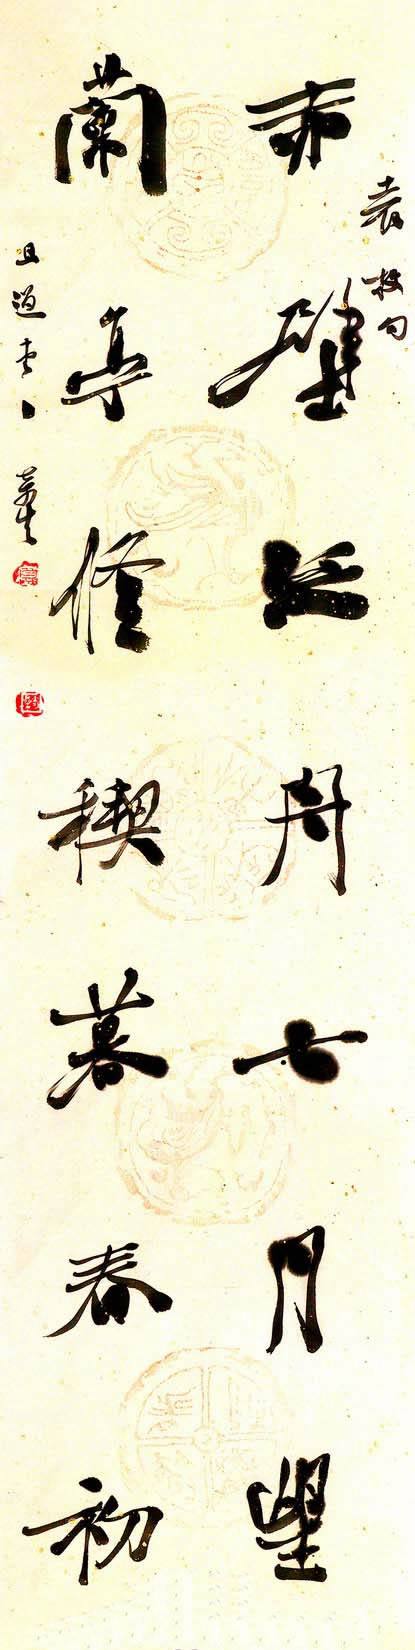 赤壁泛舟七月望
蘭亭修禊暮春初
袁枚句